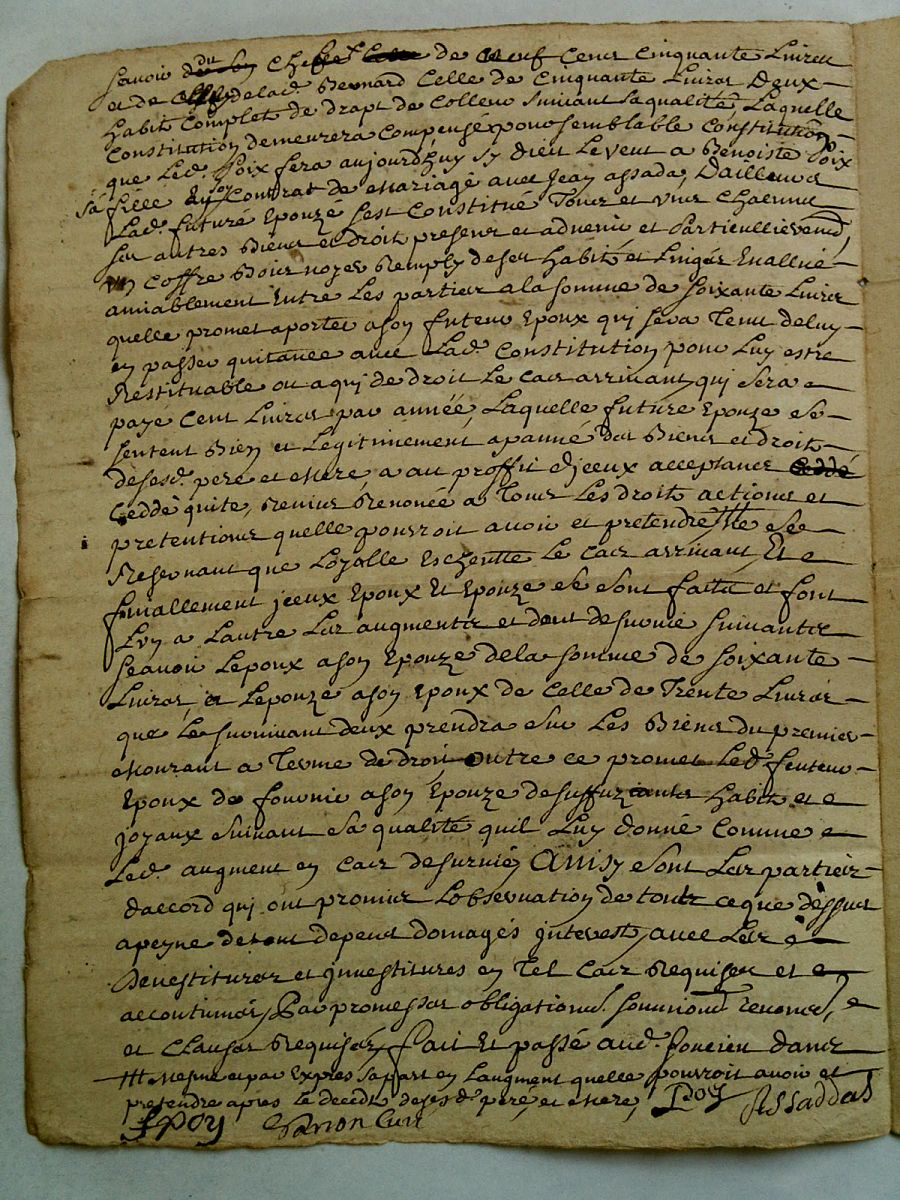 Scavoir dudit chef de neuf Cens Cinquante Livres
et de delad. Bernard Celle de Cinquante Livres Deux
habit Complets de drapt de Colleur Suivant sa qualité, Laquelle
Constitution demeurera Compensé pour semblable Constitution
que Led. Poix fera aujourdhuy Sy dieu le veut a Benoiste Poix
sa fille En son Contrat de Mariage avec Jean assada, Dailleurs
Lad. future Epouzé Sest Constitué Tous et uns Chacuns
ses autres Biens et droit presens et advenir et Particullierement,
un Coffre Bois noyer Remply de ses habits et Linges Evallué
amiablement Entre Les parties a la somme de soixante Livres
quelle promet aporter a son futeur Epoux qui sera Tenu de luy
en passer quitance avec Lad. Constitution pour Luy estre
Restituable ou a qui de droit Le Cas arrivant, qui Sera
payé Cent Livres par année, Laquelle future Epouze Se
sentent Bien et Legitimement apanné des Biens et droit
desesd. pere et Mere, a au proffit diceux acceptans
Ceddé quite, Remis Renoncé a Tous Les droit actions et
pretentions quelle pourroit avoir et pretendre Se
Reservant que Loyalle Eschentte Le Cas arrivant, Et
finallement jceux Epoux Et Epouze Se Sont faits et font
Lun a Lautre Les augmentz et dont de survie suivantes
Scavoir Lepoux a son Epouze de la Somme de Soixante
Livres, et Lepouze a son Epoux de Celle de Trente Livres
que Le survivant deux prendra Sur Les Biens du premier
Mourant a Terme de droit Outre ce promet Led. futeur
Epoux de fournir a son Epouze de suffuzantes habits et
joyaux Suivant Sa qualité quil Luy donné Comme
Led. augment en Cas de survie, Ainsy Sont Les parties
daccord qui ont promis Lobservation de tout ce que dessus
a peyne de tous depens domages jnterest, avec Les
Devestitures et jnvestitures en Tel Cas Requises et
accoutumés, Par promesses obligations. soumions renons,
et Clauses Requises, fait Et passé aud. Poncieu dans
Mesme et par Expres Sa part en Laugment quelle pourroit avoir et
pretendre apres Le decedt desesd. peré, et Mere, Poy Assaddas
J Poy Curé